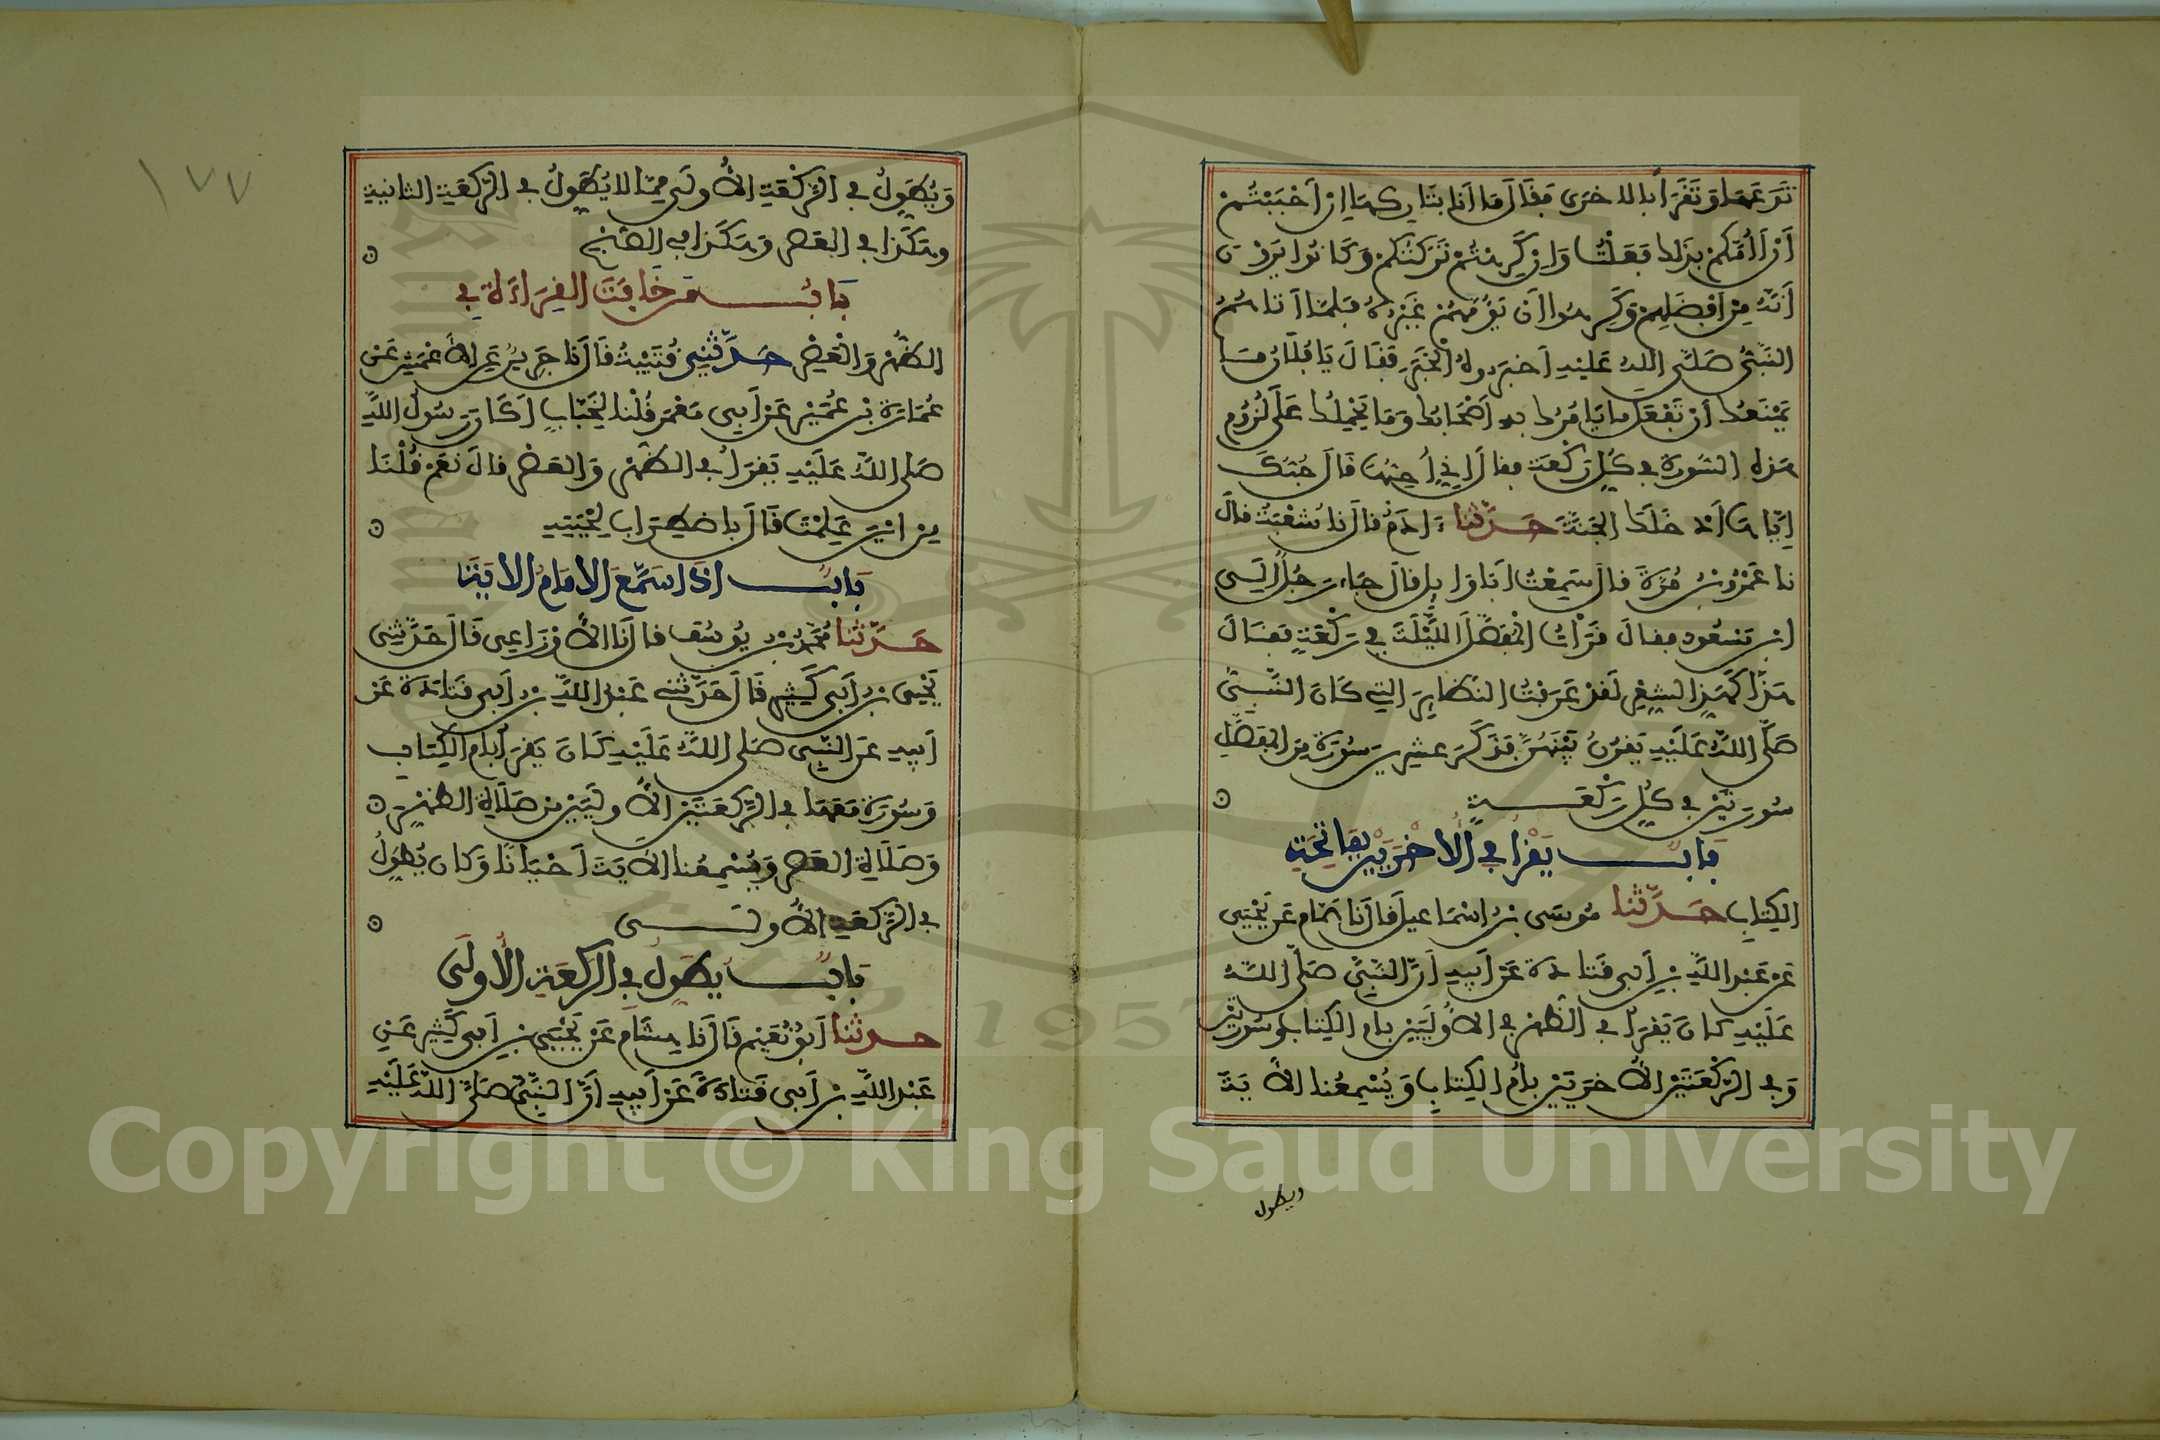 تَدَعَهَا وَتَقْرَأَ بِالاخرَى فَقَالَ مَا أَنَا بِتَارِكِهَا إِنْ أَحْبَبْتُمْ
أَنْ أَؤُمَّكُمْ بِذَلك فَعَلْتُ وَإِنْ كَرِهْتُمْ تَرَكْتُكُمْ وَكَانُوا يَرَوْنَ
أَنَّهُ مِنْ أَفْضَلِهِمْ وَكَرِهُوا أَنْ يَؤُمَّهُمْ غَيْرُهُ فَلَمَّا أَتَاهُمُ
النَّبِيُّ صَلَّى اللهُ عَلَيْهِ أَخبَرُوهُ الْخَبَرَ فَقَالَ يَا فُلَانُ مَا
يَمْنَعُكَ أَنْ تَفْعَلَ مَا يَامُرُكَ بِهِ أَصْحَابُكَ وَمَا يَحْمِلُكَ عَلَى لُزُومِ
هَذِهِ السُّورَةِ فِي كُلِّ رَكْعَة فقال إِنِّي أُحِبُّهَا قَالَ حُبُّكَ
إِيَّاهَا أَدْخَلَكَ الجَنَّةَ حَدَّثَنَا ءَادَمُ قال نا شُعْبَةُ قال
نا عَمْرُو بْنُ مُرَّةَ قال سَمِعْتُ أَبَا وَائِل قال جَاءَ رَجُلٌ إِلَى
ابْنِ مَسْعُود فقالَ قَرَأْتُ الْمُفَصَّلَ اللَّيْلَةَ فِي رَكْعَةٍ فَقَالَ
هَذًّا كَهَذِّ الشِّعْرِ لَقَدْ عَرَفْتُ النَّظَايِرَ التِي كَانَ النَّبِيُّ
صَلَّى اللَّهُ عَلَيْهِ يَقْرُنُ بَيْنَهُنَّ فَذَكَرَ عشرينَ سُورَةً مِنَ المُفَصَّلِ
سُورَتَيْنِ فِي كُلِّ رَكْعَةٍ
بَابُ يَقْرَأُ فِي الْأُخْرَيَيْنِ بِفَاتِحَةِ
الكِتَابِ حَدَّثَنَا مُوسَى بْنُ إِسْمَاعِيلَ قَالَ نَا هَمَّام عَنْ يَحْيَى
عَنْ عَبْدِ اللَّهِ بْنِ أَبِي قَتَادَةَ عَنْ أَبِيهِ أَنَّ النَّبِيَّ صَلَّى اللَّهُ
عَلَيْهِ كَانَ يَقْرَأُ فِي الظُّهْرِ فِي الأُولَيَيْنِ بِأُمِّ الكِتَابِ وَسُورَتَيْنِ
وَفِي الرَّكْعَتَيْنِ الأُخْرَيَيْنِ بِأُمِّ الكِتَابِ وَيُسْمِعُنَا الأيَةَ
ويطول
١٧٧
وَيُطَوِّلُ فِي الرَّكْعَةِ الأُولَى مِمَّا لا يُطَوِّلُ فِي الرَّكْعَةِ الثانِيةِ
وهَكَذَا فِي العَصْرِ وَهَكَذَا فِي الصُّبْحِ
بَابُ مَنْ خَافَتَ القِرَاءَةَ فِي
الظُّهْرِ وَالْعَصْرِ حَدَّثَنِي قُتَيْبَةُ قَالَ نَا جَرِيرٌ عَنِ الأَعْمَشِ عَنْ
عُمَارَةَ بْنِ عُمَيْرٍ عَنْ أَبِي مَعْمَر قُلْنَا لِخَبَّابٍ أَكَانَ رَسُولُ اللَّهِ
صَلى اللَّهُ عَلَيْهِ يَقْرَأُ فِي الظُّهْرِ وَالعَصْرِ قالَ نَعَمْ قُلْنَا
مِنْ أَيْنَ عَلِمْتَ قَالَ بِاضْطِرَابِ لِحْيَتِهِ
بَابُ إِذَا سَمَّعَ الإمَامُ الأيَةَ
حَدَّثَنَا مُحَمَّدُ بْنُ يُوسُفَ قالَ نَا الأَوْزَاعِي قَالَ حَدَّثَنِي
يَحْيَى بْنُ أَبِي كَثِيرٍ قَالَ حَدَّثَنِي عَبْدُ اللَّهِ بْنُ أَبِي قَتَادَةَ عَنْ
أَبِيهِ عَنِ النَّبِيِّ صَلى اللَّهُ عَلَيْهِ كَانَ يَقْرَأُ بِأُمِّ الكِتَابِ
وَسُورَةٍ مَعَهَا فِي الرَّكْعَتَيْنِ الأُولَيَيْنِ مِنْ صَلَاةِ الظُّهْرِ
وَصَلَاةِ العَصْرِ وَيُسْمِعُنَا الأيَةَ أَحْيَانًا وَكَانَ يُطَوِّلُ
فِي الرَّكْعَةِ الأُولَى
بَابُ يُطَوِّلُ فِي الرَّكْعَةِ الأُولَى
حدثنا أَبُو نُعَيْم قَالَ نَا هِشَام عَنْ يَحْيَى بْنِ أَبِي كَثِيرٍ عَنْ
عَبْدِ اللَّهِ بْنِ أَبِي قَتَادَةَ عَنْ أَبِيهِ أَنَّ النَّبِيَّ صَلَّى اللَّهُ عَلَيْهِ
Copyright © King Saud University
1957